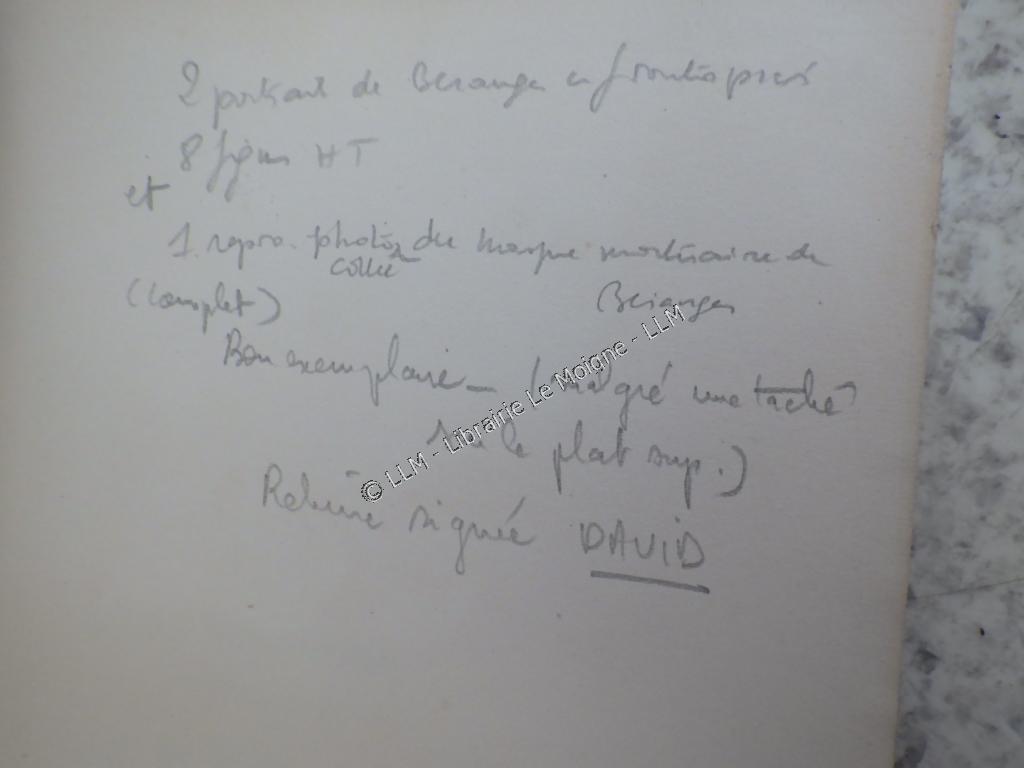 2 portrait de Beranger en frontispices
8 figures HT
et
1 repro. photo du masque mortuaire de
collée
(Complet) Béranger
Bon exemplaire - (malgré une tache
sur le plat sup.)
Reliure signée DAVID
© LLM - Librairie Le Moigne - LLM